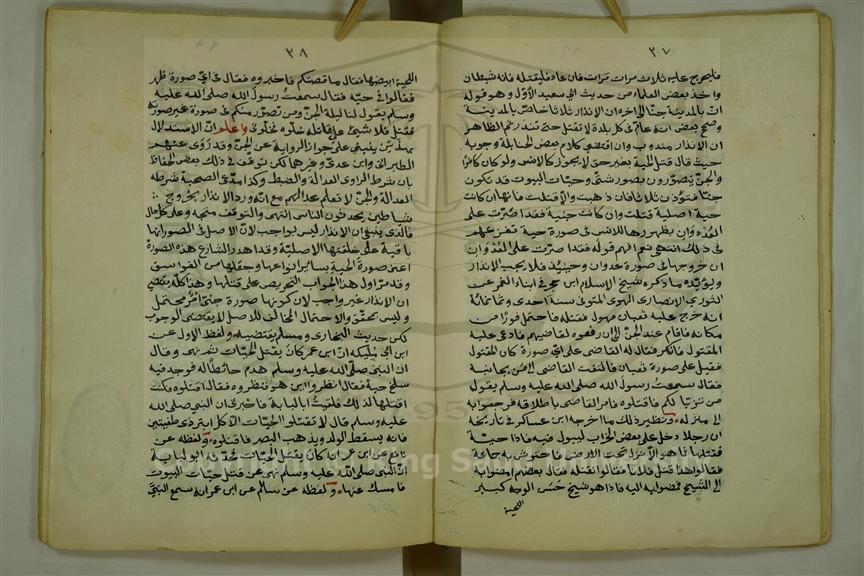 ٣٧
فليحرج عليه ثلاث مرات فان عاد فليقتله فانه شيطان
واخذ بعض العلماء من حديث ابي سعيد الاول وهو قوله
ان بالمدينة جنا الى اخره ان الانذار ثلاثا خاص بالمدينة
وصحح بعض انه عام في كل بلدة لا تقتل حتى تنذر نعم الظاهر
ان الانذار مندوب وان اقتضى كلام بعض الحنابلة وجوبه
حيث قال قتل الحية بغير حق لا يجوز كالانس ولو كان كافرا
والجن يتصورون بصور شتى وحيات البيوت قد تكون
جنا فتؤذن ثلاثا فان ذهبت والا قتلت فانها ان كانت
حية اصلية قتلت وان كانت جنية فقد اصرت على
العدوان بظهورها للانس في صورة حية تفزعهم
في ذلك انتهى نعم افهم قوله فقد اصرت على العدوان
ان خروجها في صورة عدوان وحينئذ فلا يجب الانذار
ويؤيده ما ذكره شيخ الاسلام ابن حجر في انباء الغمر عن
الثوري الانصاري الهوى المتوفى سنة احدى وثمانمائة
انه خرج عليه ثعبان مهول فقتله فاحتمل فورا من
مكانه فاقام عند الجن الى ان رفعوه لقاضيهم فادعى عليه
المقتول فانكر فقال له القاضي على اي صورة كان المقتول
فقيل على صورة ثعبان فالتفت القاضي الى من بجانبه
فقال سمعت رسول الله صلى الله عليه وسلم يقول
من تزيا لكم فاقتلوه فامر القاضي باطلاقه فرجعوا به
الى منزله ونظير ذلك ما اخرجه ابن عساكر في تاريخه
ان رجلا دخل على بعض الخراب ليبول فيه فاذا حية
فقتلها فما هو الا نزل تحت الارض فاحتوش به جماعة
فقالوا هذا قتل فلانا فقالوا نقتله فقال بعضهم امضوا به
الى الشيخ فمضوا به اليه فاذا هو شيخ حسن الوجه كبير
اللحية
٣٨
اللحية ابيضها فقال ما قصتكم فاخبروه فقال في اي صورة ظهر
فقالوا في حية فقال سمعت رسول الله صلى الله عليه
وسلم يقول لنا ليلة الجن ومن تصور منكم في صورة غير صورته
فقتل فلا شيئ على قاتله خلوه فخلوني واعلم ان الاستدلال
بهذين ينبني على جواز الرواية عن الجن وقد روى عنهم
الطبراني وابن عدي وغيرهما لكن توقف في ذلك بعض الحفاظ
بان شرط الراوي العدالة والضبط وكذا مدعي الصحبة شرطه
العدالة والجن لا تعلم عدالتهم مع انه ورد الانذار بخروج
شياطين يحدثون الناس انتهى والتوقف متجه وعلى كل حال
فالذي ينبغي ان الانذار ليس بواجب لان الاصل في الصور انها
باقية على خلقتها الاصلية وقد اهدر الشارع هذه الصورة
اعني صورة الحية بسائر انواعها وجعلها من الفواسق
وقد مر اول هذا الجواب التحريض على قتلها وهذا كله يقتضي
ان الانذار غير واجب لان كونها صورة جني امر محتمل
وليس بمحقق والاحتمال المخالف للاصل لا يقتضي الوجوب
لكن حديث البخاري ومسلم يقتضيه ولفظ الاول عن
ابن ابي مليكة ان ابن عمر كان يقتل الحيات ثم نهى وقال
ان النبي صلى الله عليه وسلم هدم حائطا له فوجد فيه
سلخ حية فقال انظروا اين هو فنظروه فقال اقتلوه فكنت
اقتلها لذلك فلقيت ابا لبابة فاخبرني ان النبي صلى الله
عليه وسلم قال لا تقتلوا الحيات الا كل ابتر ذي طفيتين
فانه يسقط الولد ويذهب البصر فاقتلوه ولفظه عن
نافع عن ابن عمر ان كان يقتل الحيات فحدثه ابو لبابة
ان النبي صلى الله عليه وسلم نهى عن قتل حيات البيوت
فامسك عنها ولفظه عن سالم عن ابن عمر انه سمع النبي